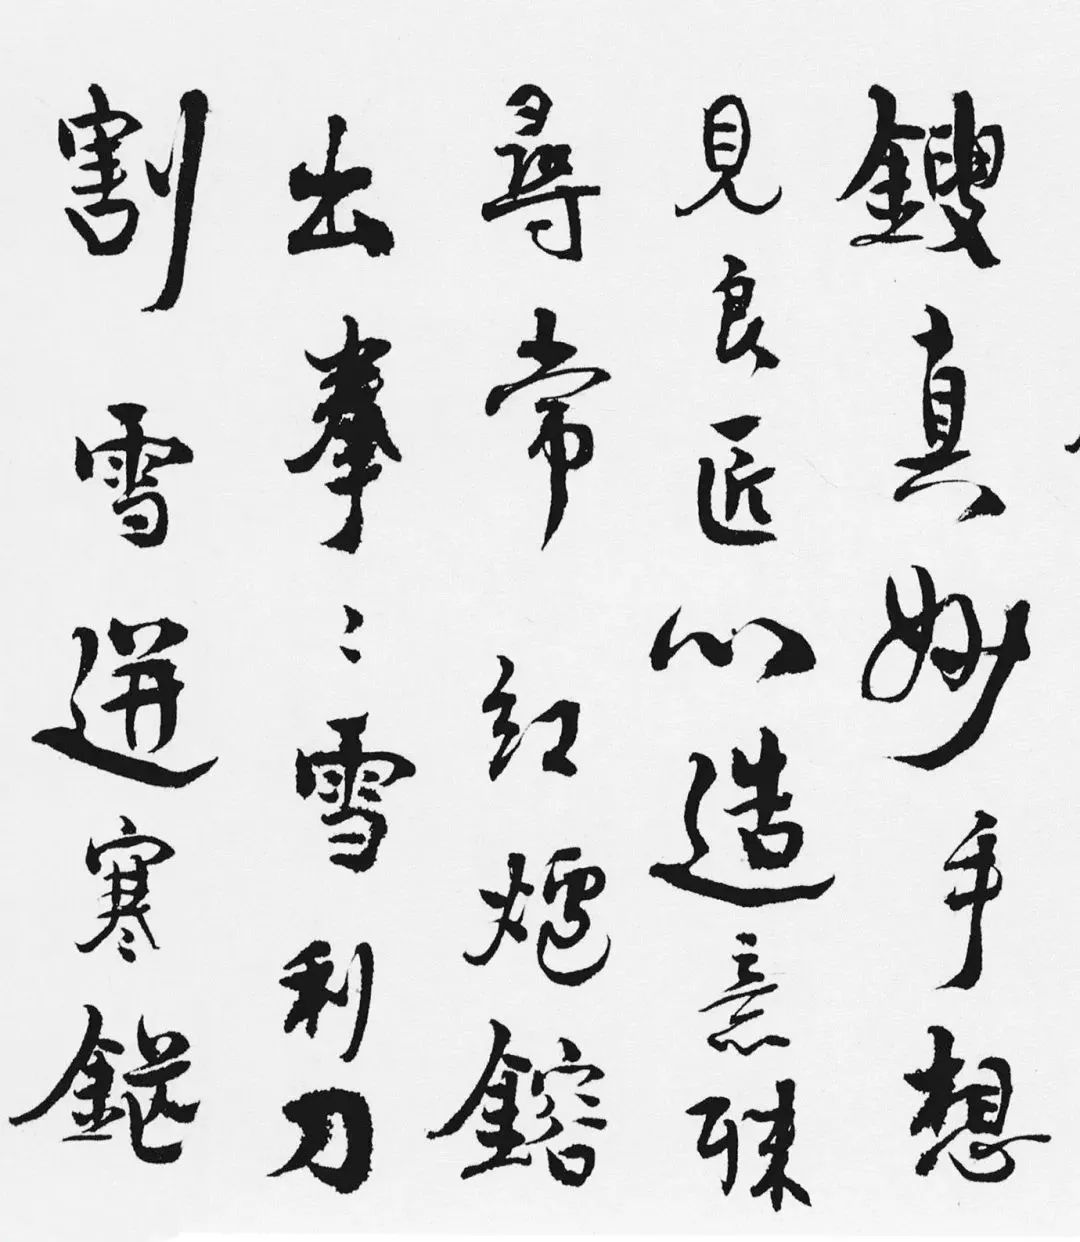 鎪真妙手想
見良匠心造意殊
尋常紅爐鎔
出拳〻雪利刀
割雪迸寒鋩